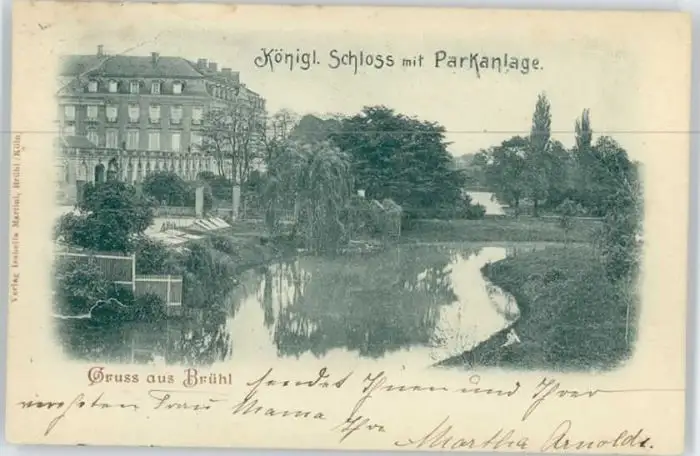 Königl. Schloss mit Parkanlage.
Verlag Isabella Martini, Brühl/Köln
Gruss aus Brühl sendet Ihnen und Ihrer
verehrten Frau Mama Ihre
Martha Arnolds.